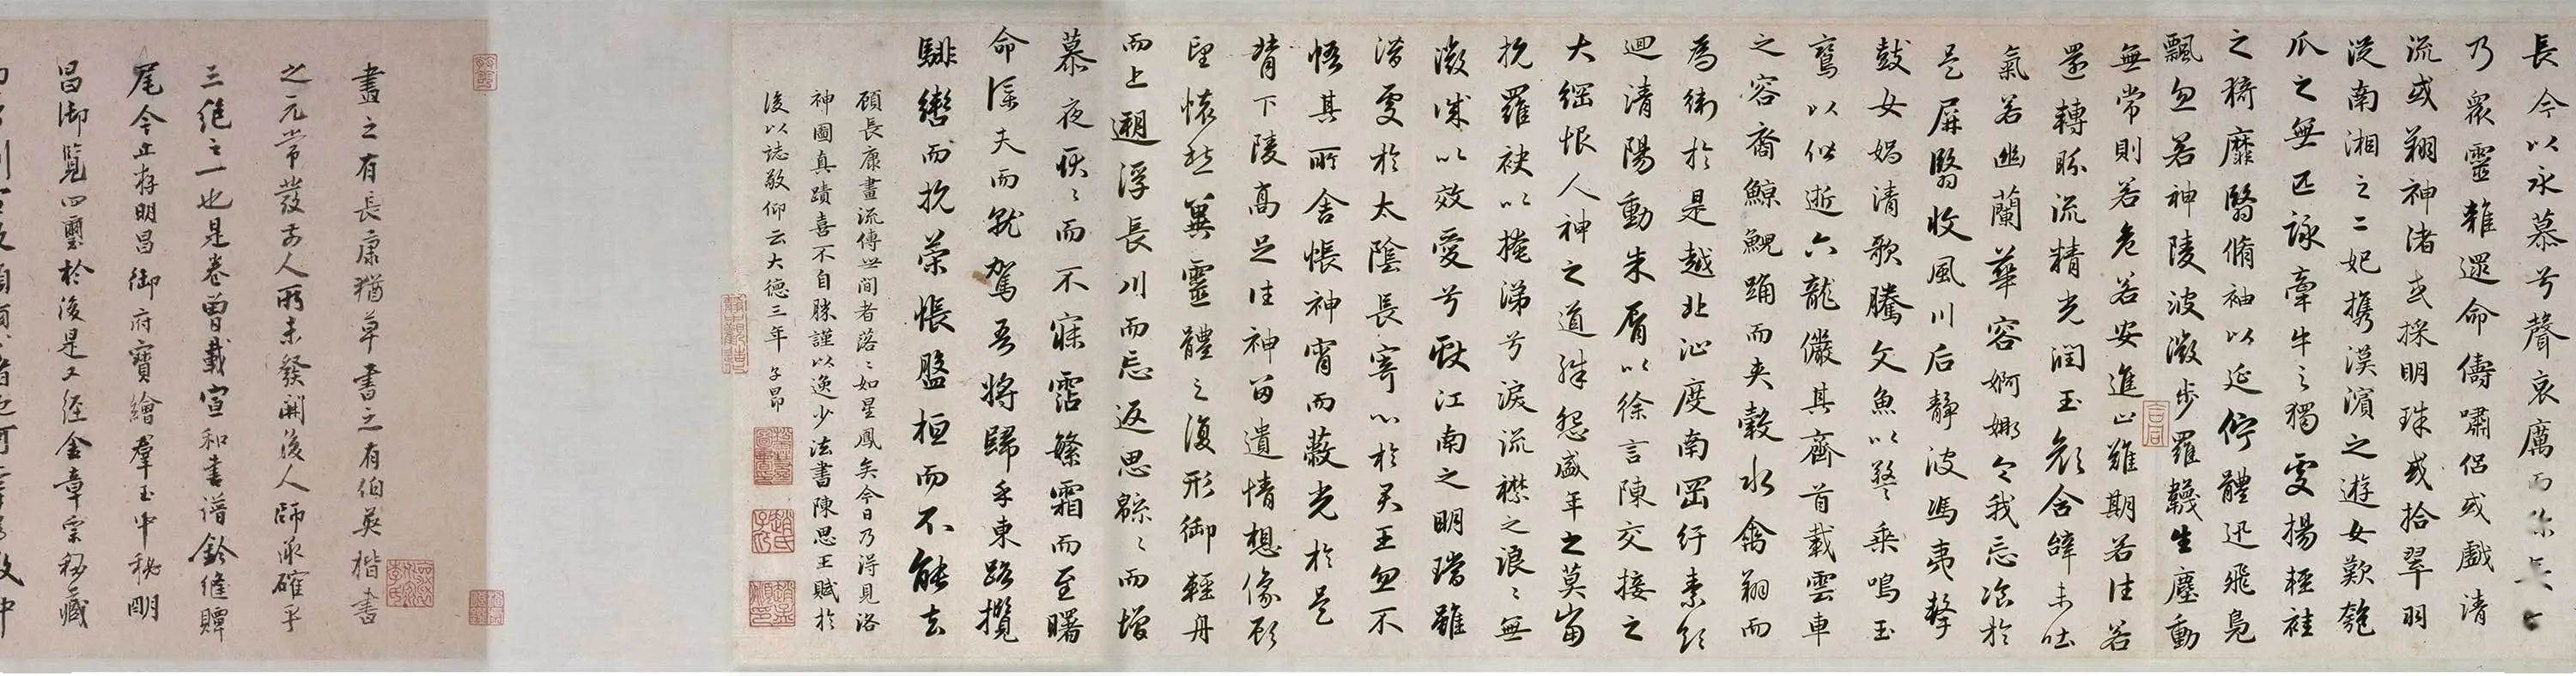 長吟以永慕兮聲哀厲而弥長
乃衆靈雜遝命儔嘯侶或戲清
流或翔神渚或採明珠或拾翠羽
從南湘之二妃携漢濱之遊女歎匏
瓜之無匹詠牽牛之獨處揚輕袿
之猗靡翳脩袖以延佇體迅飛鳧
飄忽若神陵波微步羅韈生塵動
無常則若危若安進止難期若往若
還轉眄流精光潤玉顏含辭未吐
氣若幽蘭華容婀娜令我忘飡於
是屏翳收風川后靜波馮夷擊
鼓女媧清歌騰文魚以警乘鳴玉
鸞以偕逝六龍儼其齊首載雲車
之容裔鯨鯢踊而夾轂水禽翔而
為衛於是越北沚度南岡紆素領
迴清陽動朱脣以徐言陳交接之
大綱恨人神之道殊怨盛年之莫當
抗羅袂以掩涕兮淚流襟之浪〻無
微誠以效愛兮獻江南之明璫雖
潛處於太陰長寄心於君王忽不
悟其所舍悵神宵而蔽光於是
背下陵高足往神留遺情想像顧
望懷愁冀靈體之復形御輕舟
而上遡浮長川而忘返思緜〻而增
慕夜耿〻而不寐霑繁霜而至曙
命僕夫而就駕吾將歸乎東路攬
騑轡而抗策悵盤桓而不能去
顧長康畫流傳世間者落〻如星鳳矣今日乃得見洛
神圖真蹟喜不自勝謹以逸少法書陳思王賦於
後以誌敬仰云大德三年 子昂
畫之有長康猶草書之有伯英楷書
之元常發前人所未發開後人師承確乎
三絕之一也是卷曾載宣和書譜鈐縫贉
尾今止存明昌御府寶繪羣玉中秘明
昌御覽四璽於後是又經金章宗秘藏